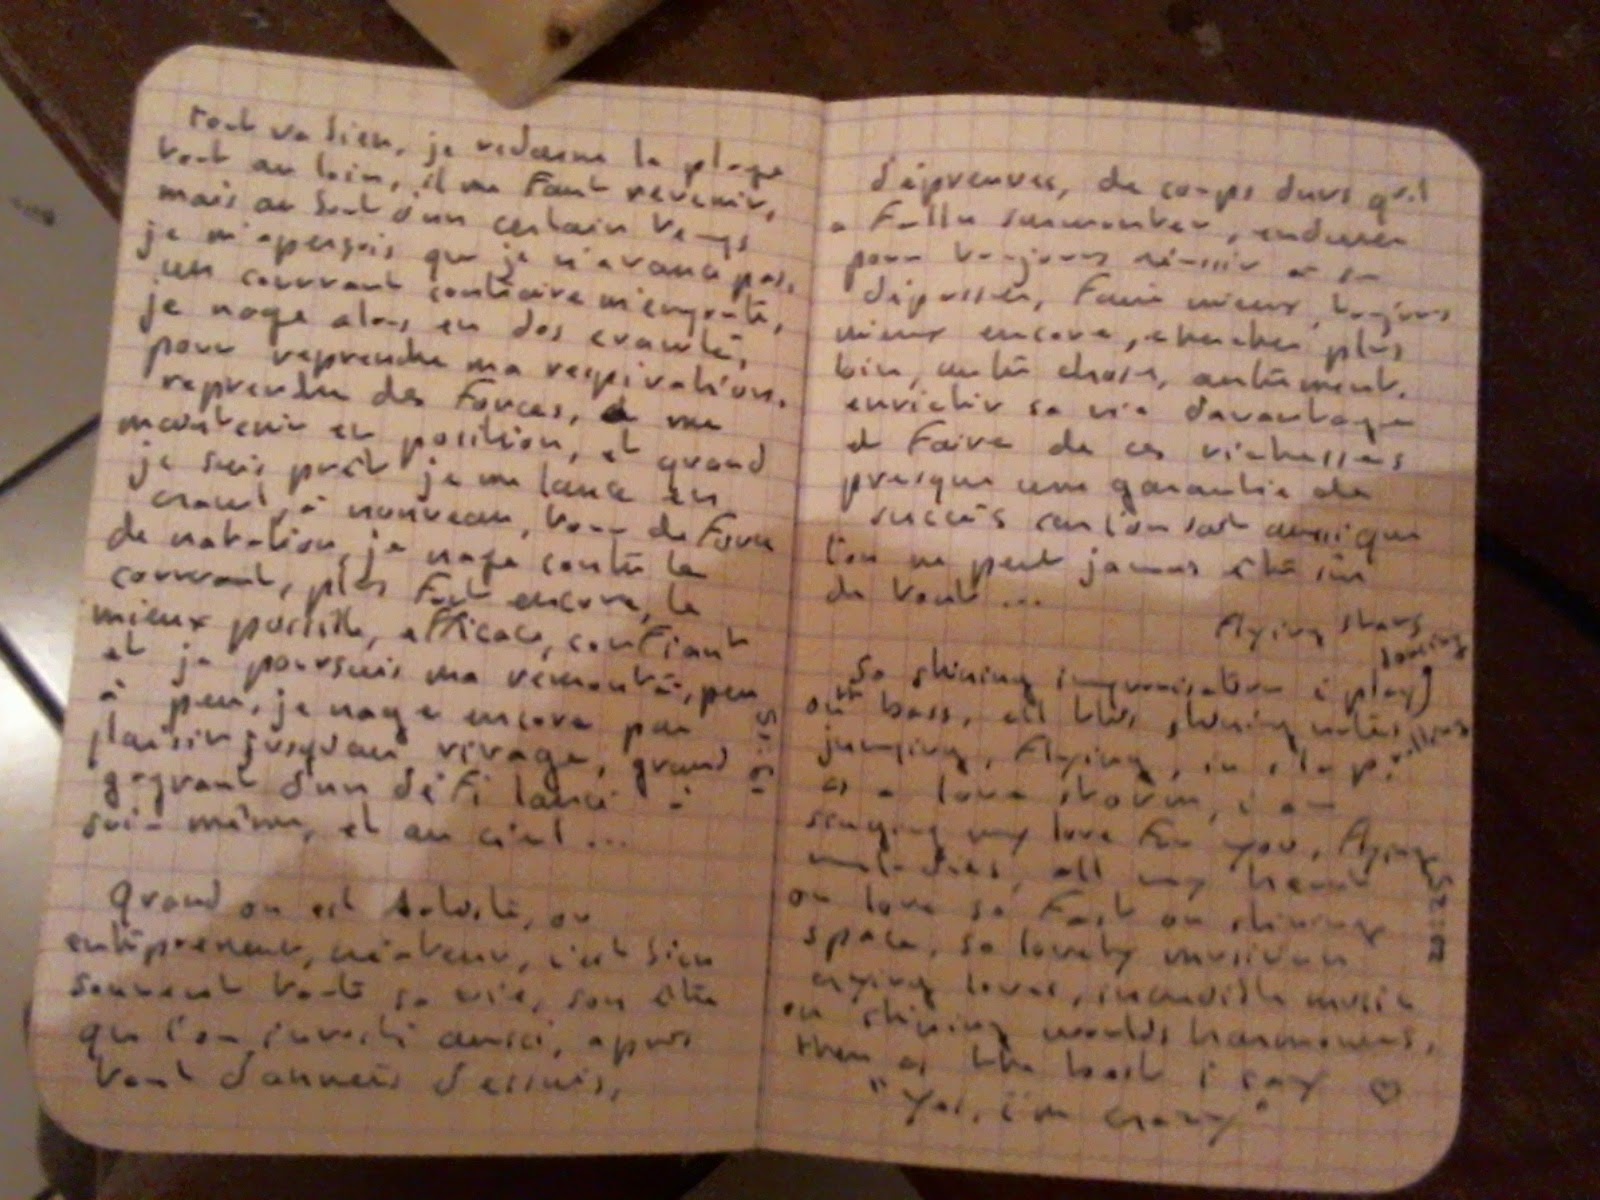 tout va bien, je redescend la plage
tout au loin, il me faut revenir,
mais au bout d'un certain temps
je m'aperçois que je n'avance pas,
un courrant contraire m'emporte,
je nage alors en dos crawlé,
pour reprendre ma respiration.
reprendre des forces, me
maintenir en position, et quand
je suis prêt je me lance en
crawl, à nouveau, tour de force
de natation, je nage contre le
courrant, plus fort encore, le
mieux possible, efficace, confiant
et je poursuis ma remontée, peu
à peu, je nage encore par
plaisir jusqu'au rivage, grand
gagnant d'un défi lancé à
soi-même, et au ciel ...
Quand on est artiste, ou
entrepreneur, créateur, c'est bien
souvent toute sa vie, son être
que l'on investi aussi, après
tant d'années d'essais,
d'épreuves, de coups durs qu'il
a fallu surmonter, endurer
pour toujours réussir à se
dépasser, faire mieux, toujours
mieux encore, chercher plus
loin, autre chose, autrement.
enrichir sa vie davantage
et faire de ces richesses
presque une garantie de
succès car l'on sait aussi que
l'on ne peut jamais être sûr
de tout ...
Flying stars
dancing
So shining improvisation i play
on bass, all this shining notes
jumping, flying, in
as a love storm, i am
singing my love for you, flying
melodies, all my heart
on love so fast on shining
space, so lovely musician
crying love, incredible music
on shining worlds harmonies,
then as the best i say ♡
"Yes, i'm crazy"